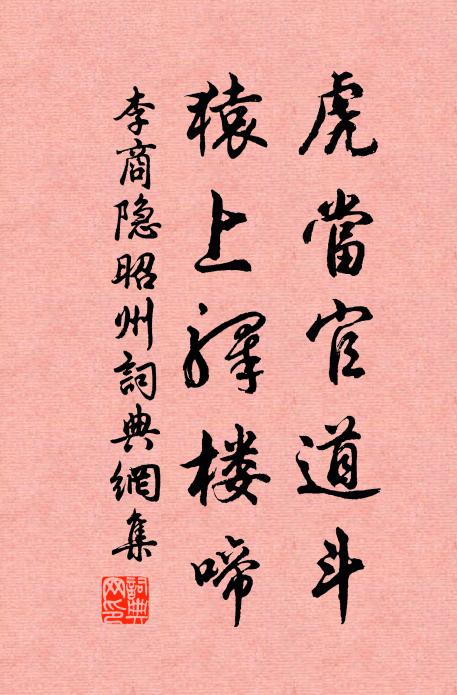 虎當官道斗
猿上驛楼啼
李商隐昭州詞典網集
詞典网印